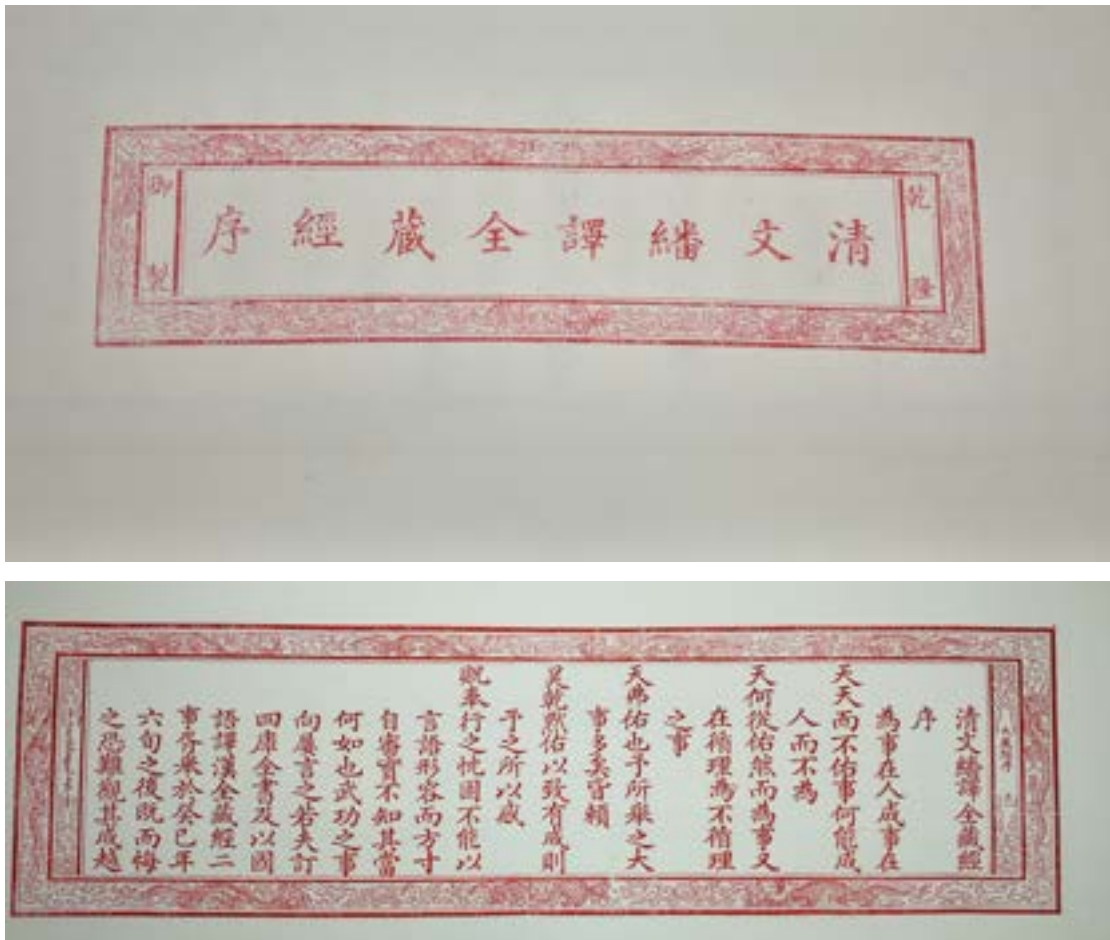 乾隆
清文繙譯全藏經序
御製
清文繙譯全藏經
序
為事在人成事在
天天而不佑事何能成
人而不為
天何從佑然而為事又
在循理為不循理
之事
天弗佑也予所舉之大
事多矣皆賴
昊乾默佑以致有成則
予之所以感
貺奉行之忱固不能以
言語形容而方寸
自審實不知其當
何如也武功之事
向屢言之若夫訂
四庫全書及以國
語譯漢全藏經二
事胥舉於癸巳年
六旬之後既而悔
之恐難觀其成越